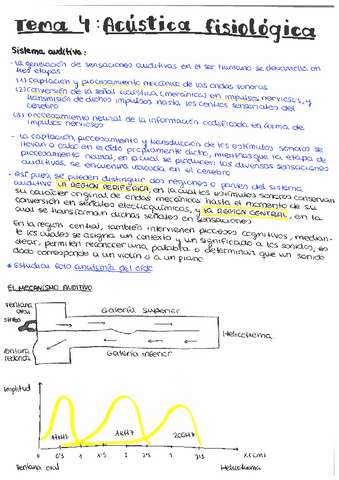 Tema 4: Acústica fisiológica
Sistema auditivo:
- La generación de sensaciones auditivas en el ser humano se desarrolla en
tres etapas
(1) captación y procesamiento mecánico de las ondas sonoras
(2) conversión de la señal acústica (mecánica) en impulsos nerviosos, y
transmisión de dichos impulsos hasta los centros sensoriales del
cerebro
(3) procesamiento neural de la información codificada en forma de
impulsos nerviosos
- La captación, procesamiento y transducción de los estímulos sonoros se
llevan a cabo en el oído propiamente dicho, mientras que la etapa de
procesamiento neural, en la cual se producen las diversas sensaciones
auditivas, se encuentra ubicada en el cerebro
- Así pues, se pueden distinguir dos regiones o partes del sistema
auditivo LA REGIÓN PERIFÉRICA, en la cual los estímulos sonoros conservan
su carácter original de ondas mecánicas hasta el momento de su
conversión en señales electroquímicas, y LA REGIÓN CENTRAL, en la
cual se transforman dichas señales en sensaciones.
En la región central, también intervienen procesos cognitivos, median-
te los cuales se asigna un contexto y un significado a los sonidos, es
decir, permiten reconocer una palabra o determinar que un sonido
dado corresponde a un violín o a un piano
* Estudiar foto anatomía del oído
EL MECANISMO AUDITIVO
Ventana
oval
Galería superior
Helicotrema
Ventana
redonda
Galería inferior
Amplitud
1KHz
200Hz
0 1 1'5 2 2'5 3 3'5 X(cm)
Ventana oval Helicotrema